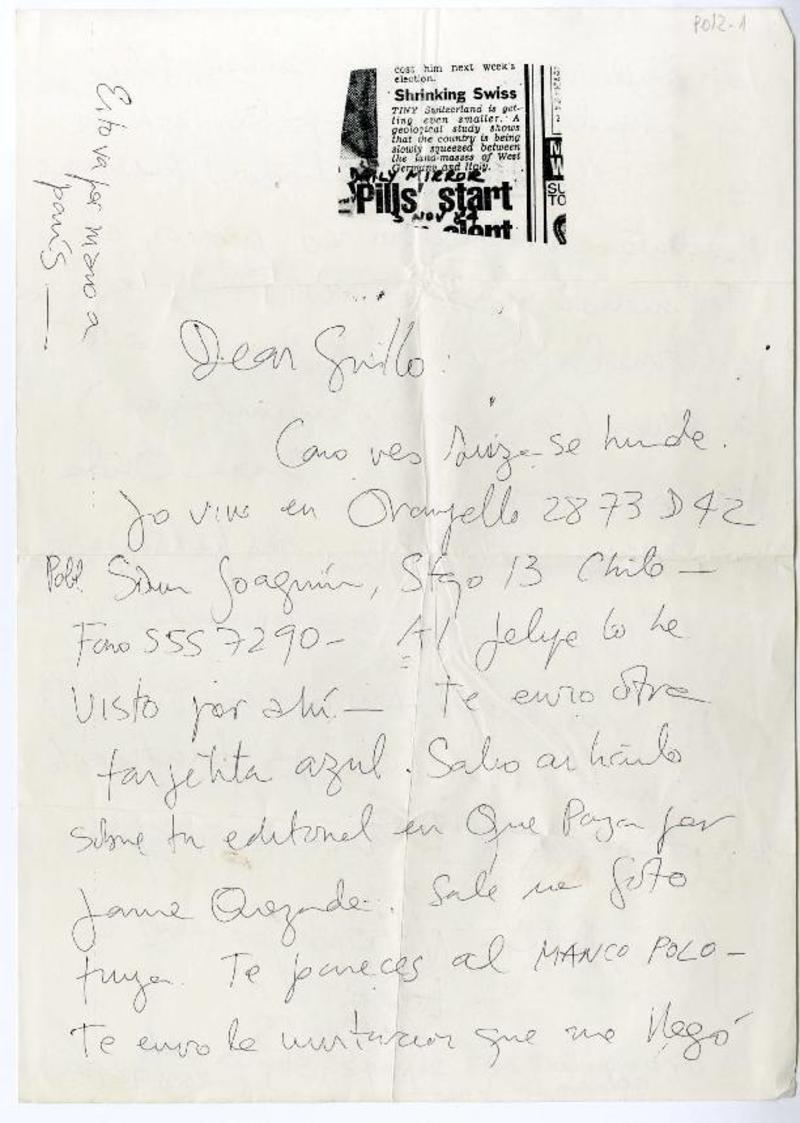 POLZ-1
Esto va por mano a
París —
cost him next week's
election.
Shrinking Swiss
TINY Switzerland is get-
ting even smaller. A
geological study shows
that the country is being
slowly squeezed between
the land-masses of West
Germany and Italy.
DAILY MIRROR
'Pills' start
5 NOV 84
Dear Guillo:
Como ves Suiza se hunde.
Yo vivo en Orompello 2873 D42
Pobl. San Joaquín, Stgo 13 Chile —
Fono 555 7290 — Al Felipe lo he
visto por ahí — Te envío otra
tarjetita azul. Salió artículo
sobre tu editorial en Que Pasa por
Jaime Quezada. Sale una foto
tuya. Te pareces al MANCO POLO —
Te envío la invitación que me llegó